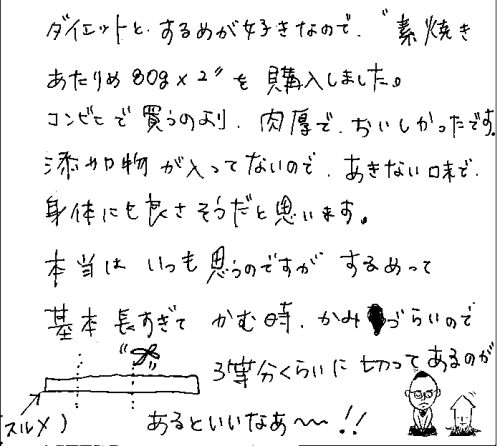 ダイエットと、するめが好きなので、"素焼き
あたりめ 80g×2"を購入しました。
コンビニで買うのより、肉厚で、おいしかったです。
添加物が入ってないので、あきない味で、
身体にも良さそうだと思います。
本当はいつも思うのですがするめって
基本長すぎてかむ時、かみづらいので
3等分くらいに切ってあるのが
(スルメ)
あるといいなあ〜〜!!